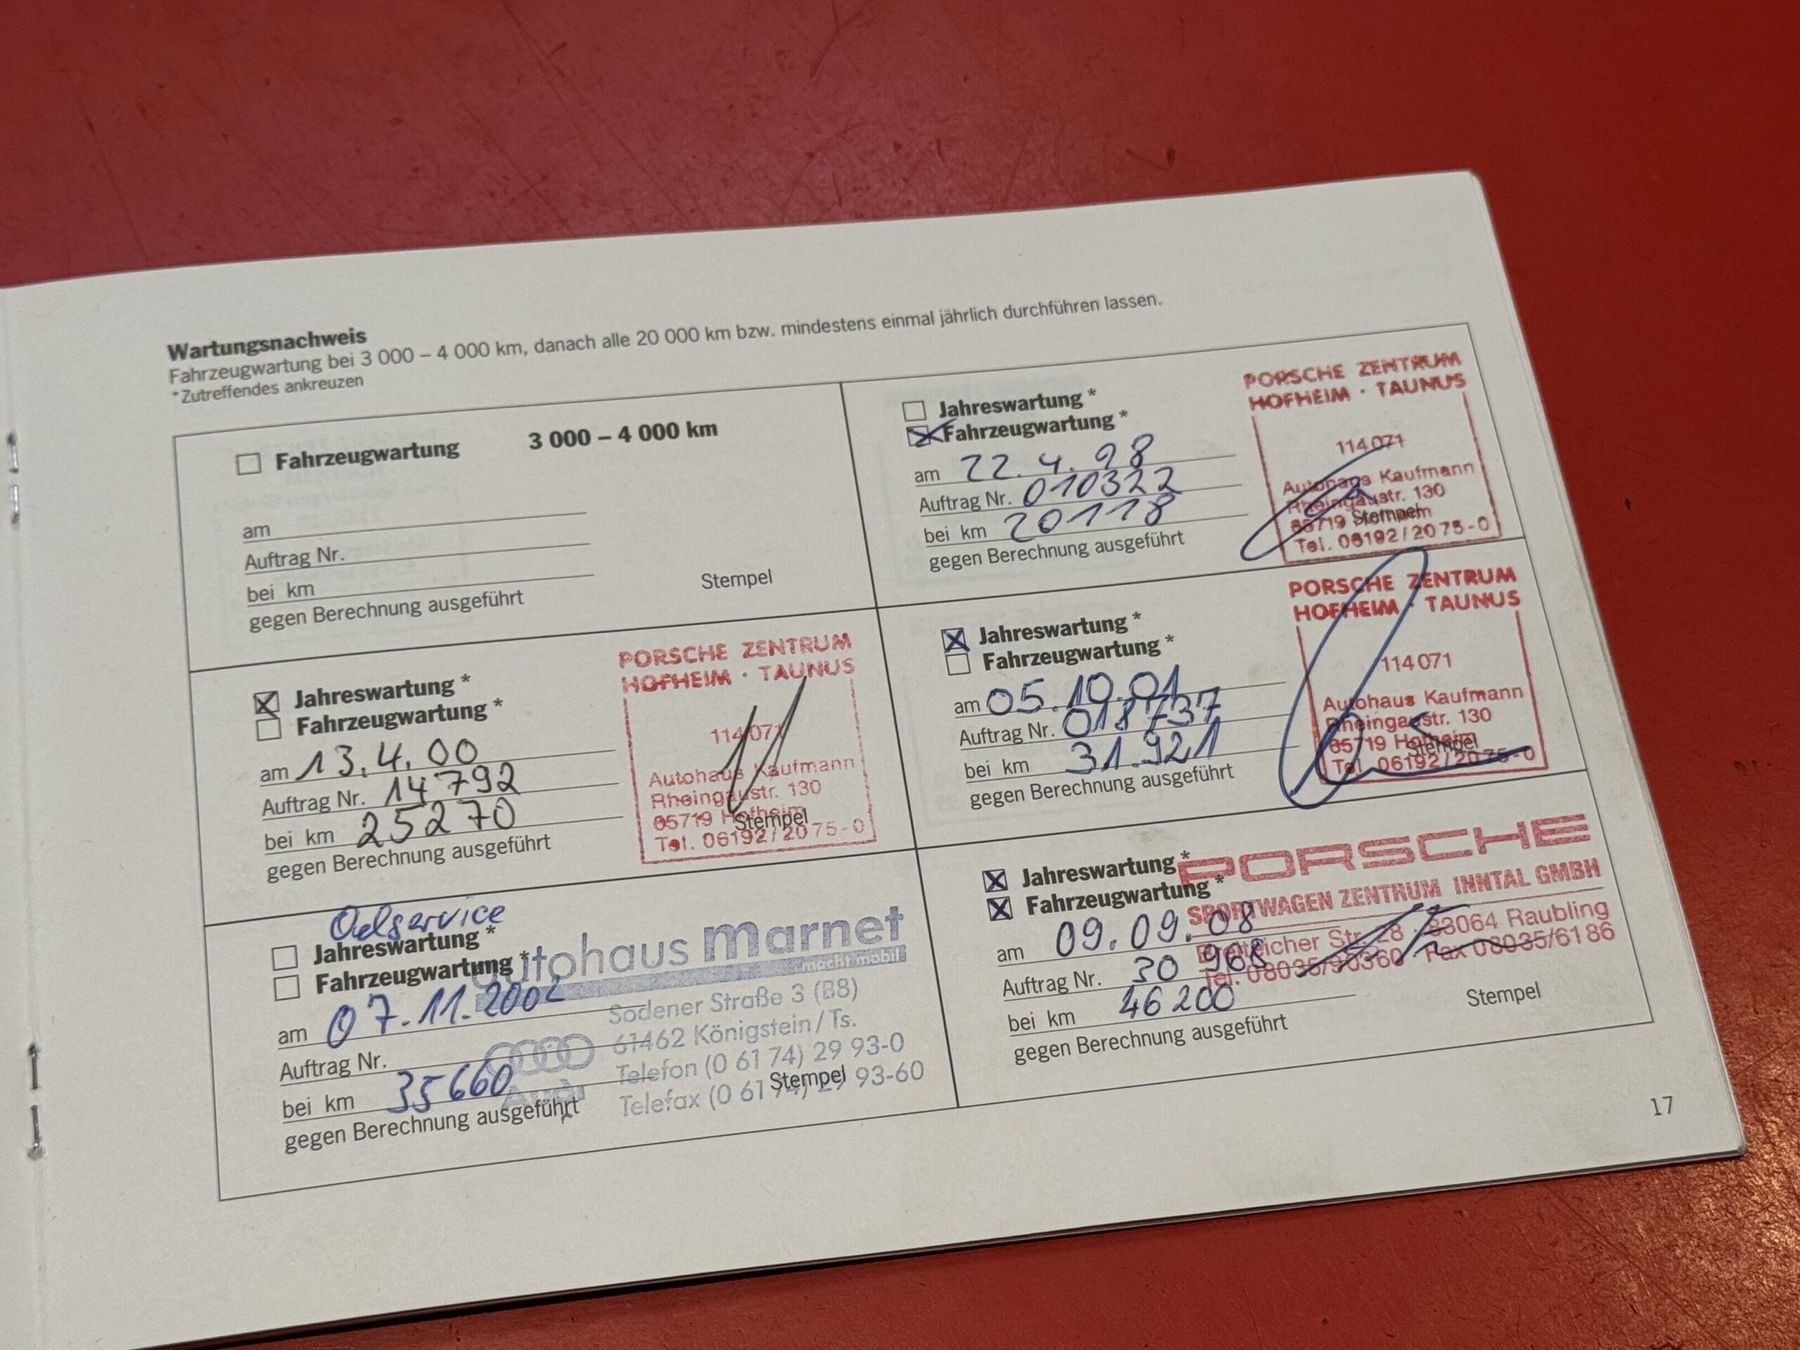 Wartungsnachweis
Fahrzeugwartung bei 3 000 – 4 000 km, danach alle 20 000 km bzw. mindestens einmal jährlich durchführen lassen.
*Zutreffendes ankreuzen
Fahrzeugwartung 3 000 – 4 000 km
am
Auftrag Nr.
bei km
gegen Berechnung ausgeführt
Stempel
Jahreswartung *
Fahrzeugwartung *
am 22.4.98
Auftrag Nr. 010322
bei km 20118
gegen Berechnung ausgeführt
PORSCHE ZENTRUM
HOFHEIM · TAUNUS
114 071
Autohaus Kaufmann
Rheingaustr. 130
65719 Hofheim
Stempel
Tel. 06192/20 75-0
Jahreswartung *
Fahrzeugwartung *
am 13.4.00
Auftrag Nr. 14792
bei km 25270
gegen Berechnung ausgeführt
PORSCHE ZENTRUM
HOFHEIM · TAUNUS
114 071
Autohaus Kaufmann
Rheingaustr. 130
65719 Hofheim
Stempel
Tel. 06192/20 75-0
Jahreswartung *
Fahrzeugwartung *
am 05.10.01
Auftrag Nr. 018737
bei km 31.921
gegen Berechnung ausgeführt
PORSCHE ZENTRUM
HOFHEIM · TAUNUS
114 071
Autohaus Kaufmann
Rheingaustr. 130
65719 Hofheim
Stempel
Tel. 06192/20 75-0
Oelservice
Jahreswartung *
Fahrzeugwartung *
am 07.11.2002
Auftrag Nr.
bei km 35660
gegen Berechnung ausgeführt
autohaus marnet
macht mobil
Sodener Straße 3 (B8)
61462 Königstein / Ts.
Telefon (0 61 74) 29 93-0
Telefax (0 61 74) 29 93-60
Audi
Stempel
Jahreswartung *
Fahrzeugwartung *
am 09.09.08
Auftrag Nr. 30 968
bei km 46200
gegen Berechnung ausgeführt
PORSCHE
SPORTWAGEN ZENTRUM INNTAL GMBH
Str. 28 · 83064 Raubling
Tel. 08035/90360 Fax 08035/6186
Stempel
17